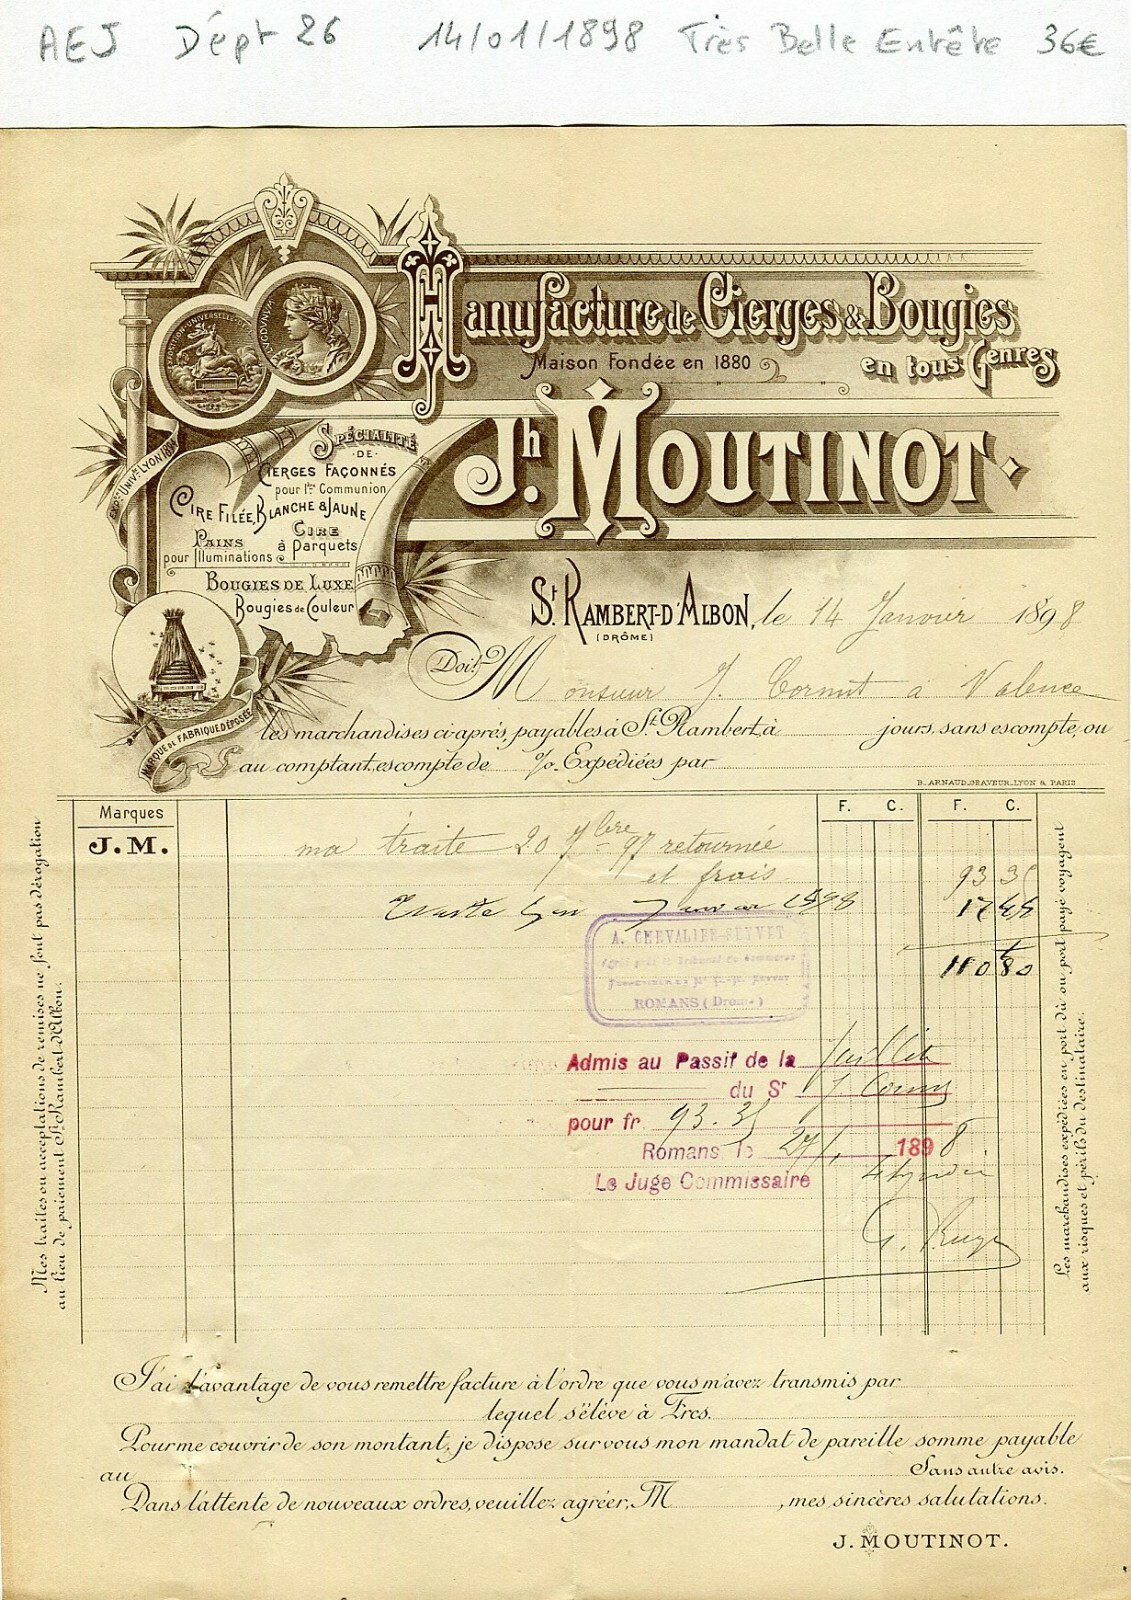 AEJ Dépt 26 14/01/1898 Très Belle Entête 36€
Manufacture de Cierges & Bougies
en tous Genres
Maison Fondée en 1880
Jh. MOUTINOT
EXPOSITION UNIVERSELLE
LVGDVNVM
EXPon UNIVlle LYON
SPÉCIALITÉ
DE
CIERGES FAÇONNÉS
pour 1ère Communion
CIRE FILÉE, BLANCHE & JAUNE
PAINS
pour Illuminations
CIRE
à Parquets
BOUGIES DE LUXE
Bougies de Couleur
MARQUE DE FABRIQUE DÉPOSÉE
St. RAMBERT-D'ALBON, le 14 Janvier 1898
(DRÔME)
Doit Monsieur J. Cornut à Valence
les marchandises ci-après, payables à St. Rambert, à jours, sans escompte, ou
au comptant, escompte de %. Expédiées par
B. ARNAUD, GRAVEUR, LYON & PARIS
Marques F. C. F. C.
J. M.
ma traite 20 7bre 97 retournée
et frais 93 35
Janvier 1898 17 45
110 80
A. CHEVALIER-REYVET
Agréé près le Tribunal de Commerce
ROMANS (Drôme)
Admis au Passif de la faillite
du Sr J. Cornut
pour fr. 93.35
Romans le 27/1 1898
Le Juge Commissaire
Mes traites ou acceptations de remises ne font pas dérogation
au lieu de paiement St. Rambert-d'Albon.
Les marchandises expédiées en port dû ou port payé voyagent
aux risques et périls du destinataire.
J'ai l'avantage de vous remettre facture à l'ordre que vous m'avez transmis par
lequel s'élève à Frcs.
Pour me couvrir de son montant, je dispose sur vous mon mandat de pareille somme payable
au Sans autre avis.
Dans l'attente de nouveaux ordres, veuillez agréer, M , mes sincères salutations.
J. MOUTINOT.